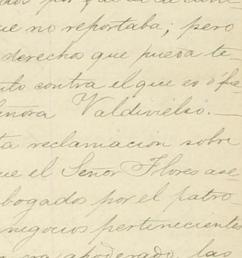 que no reportaba; pero
derecho que pueda te-
nto contra el que es ó fue
Señora Valdivielso.—
ta reclamacion sobre
que el Señor Flores ase
bogados por el patro
negocios pertinecientes
era apoderado, las